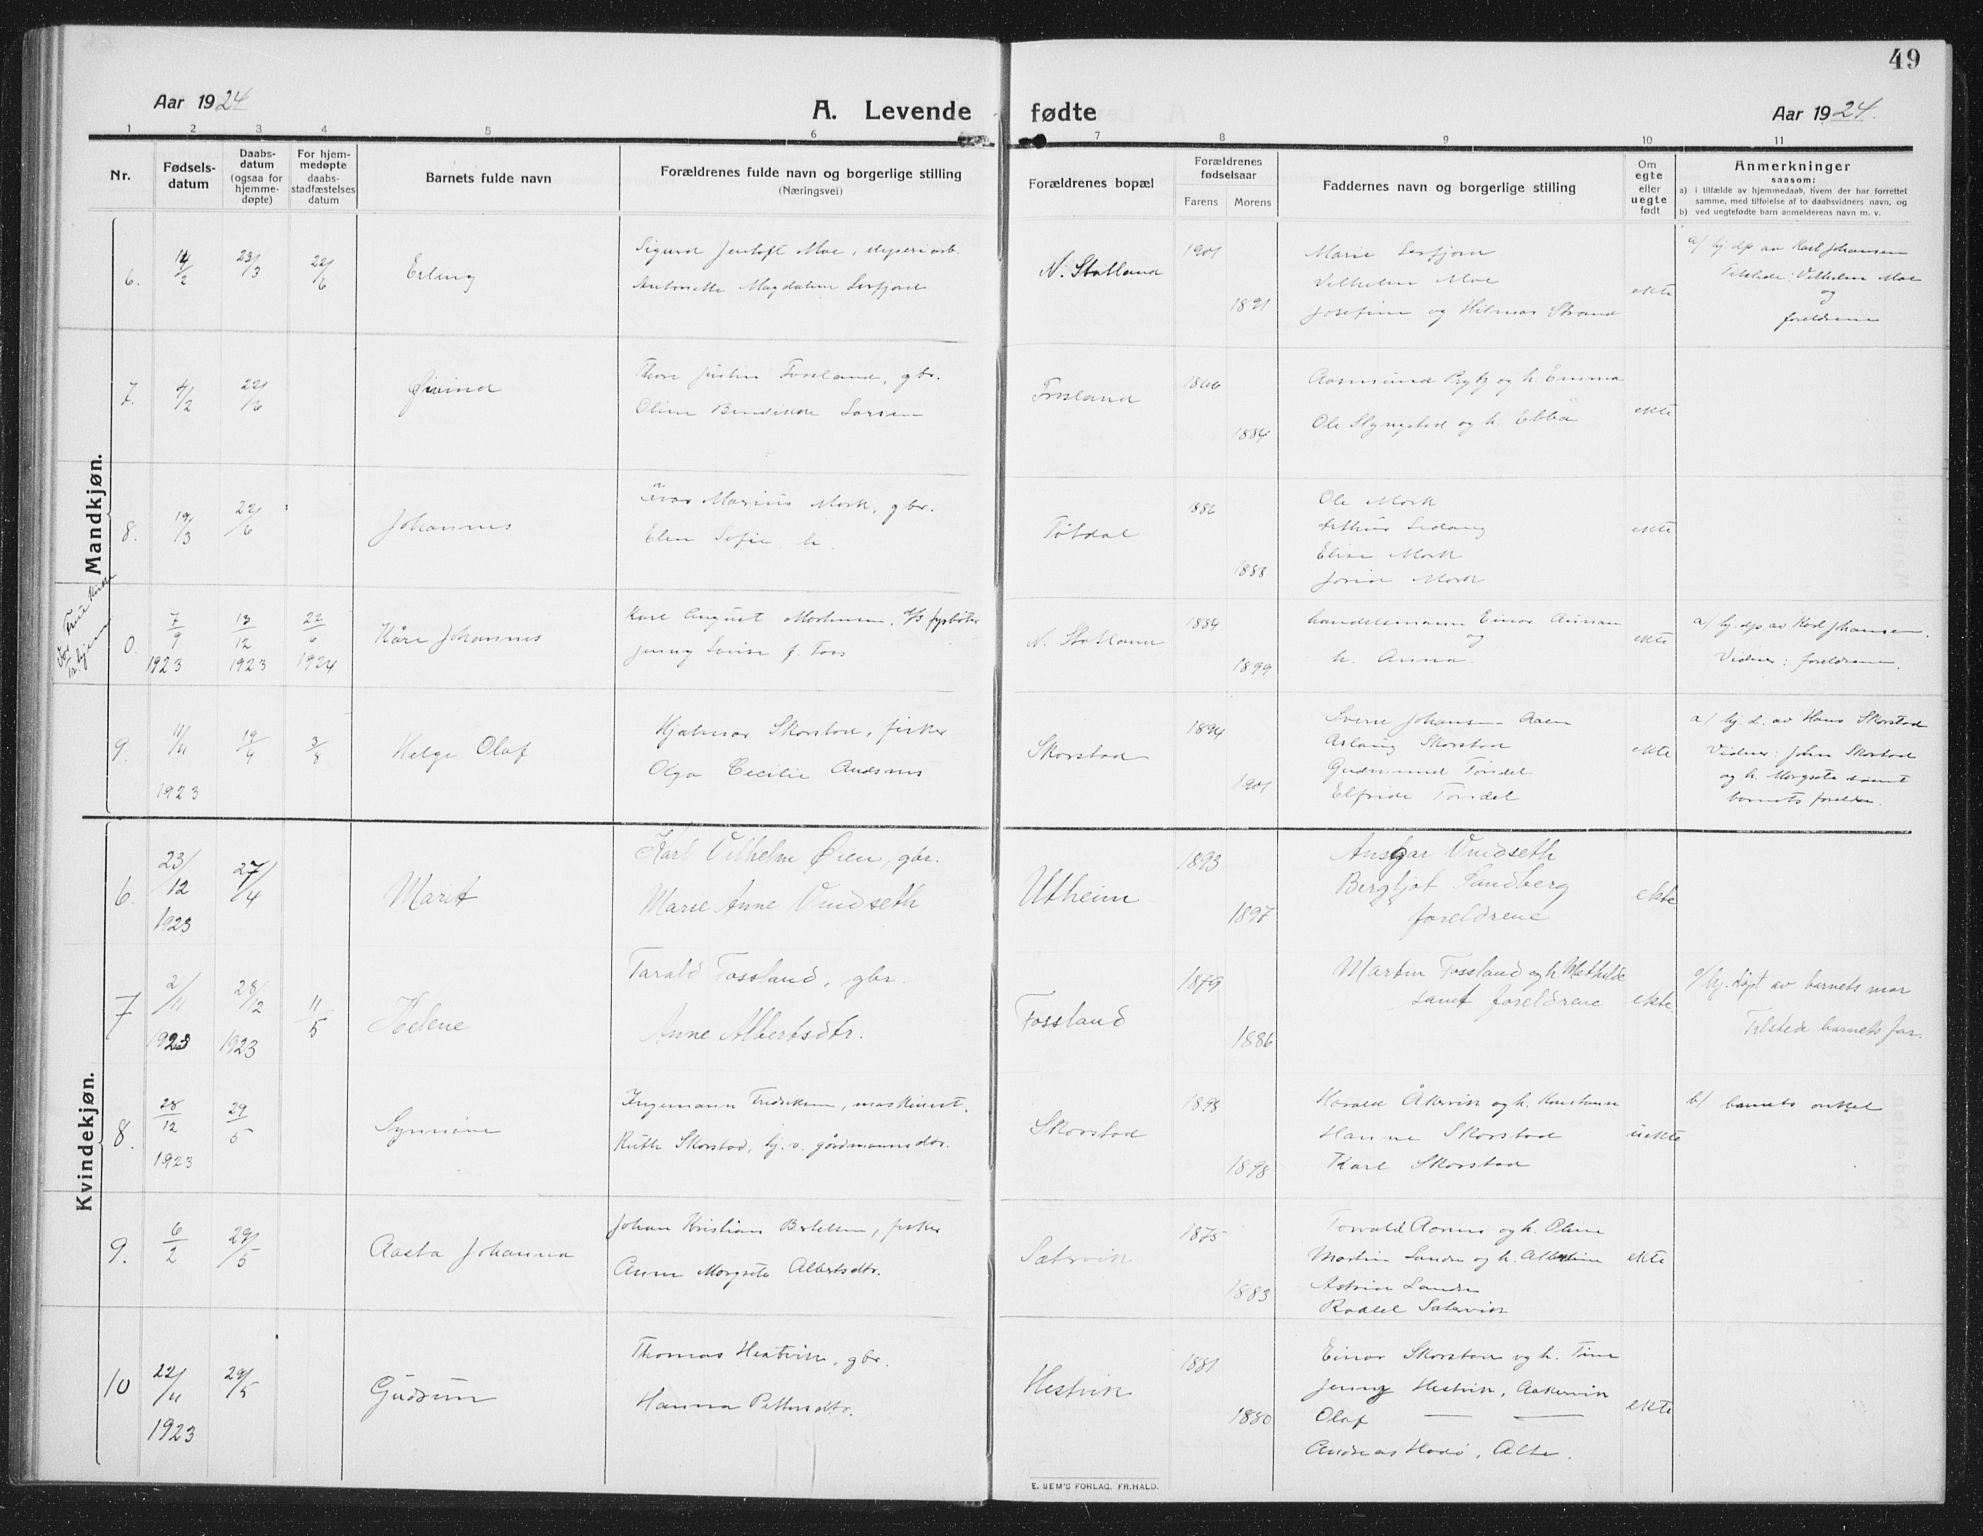 49
Aar 1924
A. Levende fødte
Aar 1924.
1 2 3 4 5 6 7 8 9 10 11
Nr.
Fødsels-
datum
Daabs-
datum
(ogsaa for
hjemme-
døpte)
For hjem-
medøpte
daabs-
stadfæstelses
datum
Barnets fulde navn
Forældrenes fulde navn og borgerlige stilling
(Næringsvei)
Forældrenes bopæl
Forældrenes
fødselsaar
Farens Morens
Faddernes navn og borgerlige stilling
Om
egte
eller
uegte
født
Anmerkninger
saasom:
a) i tilfælde av hjemmedaab, hvem der har forrettet
samme, med tilføielse af to daabsvidners navn, og
b) ved uegtefødte barn anmelderens navn m. v.
Mandkjøn.
6. 14/2 23/3 22/6
Erling
Sigurd Jentoft Moe,
Antonette Magdalene
N. Statland
1901
1891
Marie
Vilhelm Moe
Josefine og Hilmar Strand
ekte
a/ hj. dp av Karl Johansen
Tilstede: Vilhelm Moe
og
foreldrene
7. 4/2 22/6
Øivind
Fossland, gbr.
Oline Larsen
Fossland
1884
og h. Emma
Ole og h. Ebba
ekte
8. 19/3 22/6
Johannes
Ivar Marius Mork, gbr.
Elen Sofie h.
Tøtdal
1886
1888
Ole Mork
Arthur
Elise Mork
Mork
ekte
0. 7/9 1923 13/12 1923 22/6 1924
Kåre Johannes
Karl August fyrbøter
Jenny Lovise f. Foss
N. Statland
1884
1899
handelsmann Einar
og
h. Anna.
ekte
a/ hj. dp av Karl Johansen.
Vidner: foreldrene.
9. 11/11 1923 19/4 3/8
Helge Olaf
Hjalmar Skorstad, fisker
Olga Cecilie Andsnes
Skorstad
1894
1901
Sverre Johansen Aaen
Aslaug Skorstad
Gudmund Tøndel
Elfride Tøndel
ekte
a/ hj. d. av Hans Skorstad
Vidner: John Skorstad
og h. Margrete samt
barnets foreldre.
Kvindekjøn.
6. 23/12 1923 27/4
Marit
Karl Vilhelm Øien, gbr.
Marie Anne Vindseth
Utheim
1893
1897
Ansgar Vindseth
Bergljot Sandberg
foreldrene
ekte
7 2/11 1923 28/12 1923 11/5
Helene
Tarald Fossland, gbr.
Anne Albertsdtr.
Fossland
1879
1886
Martin Fossland og h. Mathilde
samt foreldrene
ekte
a/ hj. døpt av barnets mor
Tilstede barnets far.
8. 28/12 1923 29/5
Synnöve
Ingemann Fredriksen, maskinist.
Ruth Skorstad, hj. v. gårdmannsdtr.
Skorstad
1898
1898
Harald Åkervik og h. Konstanse
Hanna Skorstad
Karl Skorstad
uekte
b/ barnets onkel
9. 6/2 29/5
Aasta Johanna
Johan Kristian Bertelsen, fisker
Anne Margrete Albertsdtr.
Sætervik
1875
1883
Torvald og h. Oline
Martin Sandø og h. Albertine
Astrid Sandø
Sætervik
ekte
10 22/11 1923 29/5
Gudrun
Thomas Hestvik, gbr.
Hanna Pettersdtr.
Hestvik
1881
1880
Einar Skorstad og h. Tine
Jenny Hestvik, Aakervik
Olaf — —
Andreas Hodø,
ekte
E. SEM'S FORLAG. FR.HALD.